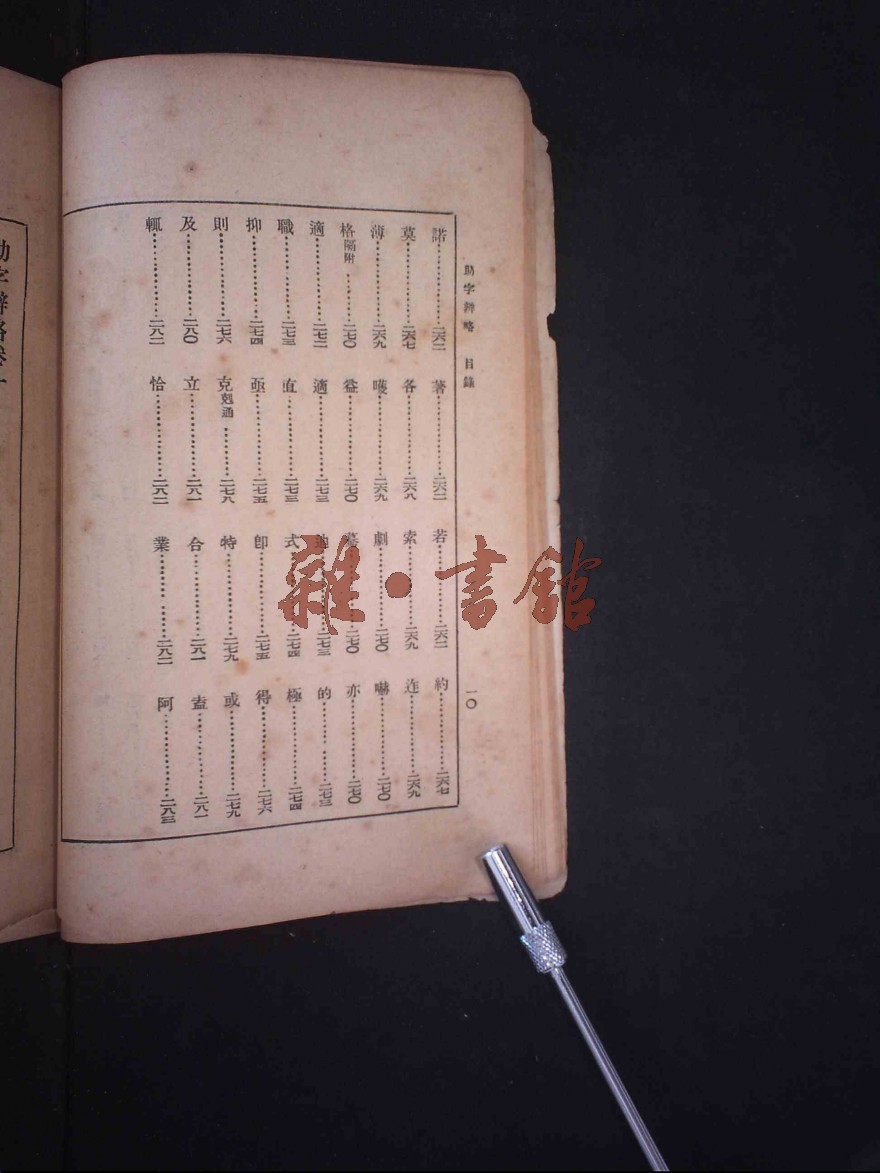 助字辨略 目錄 一〇
諾……二六二 著……二六二 若……二六二 約……二六七
莫……二六七 各……二六八 索……二六九 迮……二六九
薄……二六九 嚄……二六九 劇……二七〇 嚇……二七〇
格隔附……二七〇 益……二七〇 驀……二七〇 亦……二七〇
適……二七二 適……二七三 迪……二七三 的……二七三
職……二七三 直……二七三 式……二七四 極……二七四
抑……二七四 亟……二七五 卽……二七五 得……二七六
則……二七六 克剋通……二七八 特……二七九 或……二七九
及……二八〇 立……二八一 合……二八一 盍……二八一
輒……二八二 恰……二八二 業……二八二 阿……二八三
助字辨略卷一
雜·書館